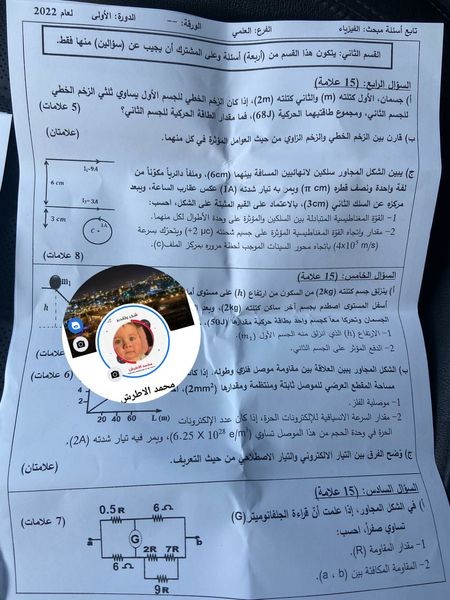 تابع أسئلة مبحث: الفيزياء الفرع: العلمي الورقة: -- الدورة: الأولى لعام 2022
القسم الثاني: يتكون هذا القسم من (أربعة) أسئلة وعلى المشترك أن يجيب عن (سؤالين) منها فقط.
السؤال الرابع: (15 علامة)
أ) جسمان، الأول كتلته (m) والثاني كتلته (2m)، إذا كان الزخم الخطي للجسم الأول يساوي ثلثي الزخم الخطي
للجسم الثاني، ومجموع طاقتيهما الحركية (68J)، فما مقدار الطاقة الحركية للجسم الثاني؟ (5 علامات)
ب) قارن بين الزخم الخطي والزخم الزاوي من حيث العوامل المؤثرة في كل منهما. (علامتان)
ج) يبين الشكل المجاور سلكين لانهائيين المسافة بينهما (6cm)، وملفاً دائرياً مكوّناً من
لفة واحدة ونصف قطره (π cm) ويمر به تيار شدته (1A) عكس عقارب الساعة، ويبعد
مركزه عن السلك الثاني (3cm)، بالاعتماد على القيم المثبتة على الشكل، احسب:
1- القوة المغناطيسية المتبادلة بين السلكين والمؤثرة على وحدة الأطوال لكل منهما.
2- مقدار واتجاه القوة المغناطيسية المؤثرة على جسيم شحنته (+2 μc) ويتحرك بسرعة
(4x10⁵ m/s) باتجاه محور السينات الموجب لحظة مروره بمركز الملف(c). (8 علامات)
I₁=9A
6 cm
I₂= 3A
3 cm
C
1A
السؤال الخامس: (15 علامة)
أ) ينزلق جسم كتلته (2kg) من السكون من ارتفاع (h) على مستوى أملس
أسفل المستوى اصطدم بجسم آخر ساكن كتلته (2kg)، وبعد
الجسمان وتحركا معاً كجسم واحد بطاقة حركية مقدارها (50J)،
1- الارتفاع (h) الذي انزلق منه الجسم الأول (m₁).
2- الدفع المؤثر على الجسم الثاني.
m₁
h
ب) يبين الشكل المجاور يبين العلاقة بين مقاومة موصل فلزي وطوله، إذا كانت (6 علامات)
مساحة المقطع العرضي للموصل ثابتة ومنتظمة ومقدارها (2mm²)
1- موصلية الفلز.
2- مقدار السرعة الانسياقية للإلكترونات الحرة، إذا كان عدد الإلكترونات
الحرة في وحدة الحجم من هذا الموصل تساوي (6.25 X 10²⁸ e/m³)، ويمر فيه تيار شدته (2A).
4
2
20 40 60 L (m)
ج) وضح الفرق بين التيار الالكتروني والتيار الاصطلاحي من حيث التعريف. (علامتان)
محمد الاطرش
السؤال السادس: (15 علامة)
أ) في الشكل المجاور، إذا علمت أنّ قراءة الجلفانوميتر (G)
تساوي صفراً، احسب:
1- مقدار المقاومة (R).
2- المقاومة المكافئة بين (a ، b).
(7 علامات)
0.5R 6Ω
a G b
2R 7R
6Ω
9R